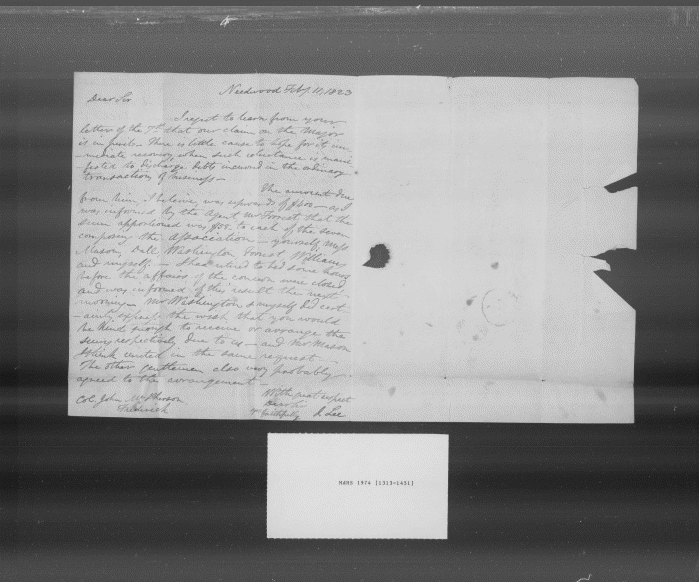 Needwood Feby. 11, 1823
Dear Sir
I regret to learn from your
letter of the 7th that our claim on the Major
is in peril. There is little cause to hope for it im
-mediate recovery when such reluctance is mani
-fested to discharge debts incurred in the ordinary
transaction of business –
The amount due
from him, I believe, was upwards of $400 – as I
was informed by the Agent Mr Forrest that the
sum apportioned was $50 to each of the seven
composing the Association – yourself, Messrs
Mason, Dall, Washington, Forrest, Williams
and myself. – I had retired to bed some hours
before the affairs of the concern were closed,
and was informed of this result the next
morning. Mr Washington & myself did cert
-ainly express the wish that you would
be kind enough to receive or arrange the
sums respectively due to us – and Mr Mason
I think united in the same request –
The other gentlemen also very probably
agreed to this arrangement
With great respect
Dear Sir
Yr faithfully
J. Lee
Col. John McPherson
Frederick
MdHS 1974 [1313-1451]